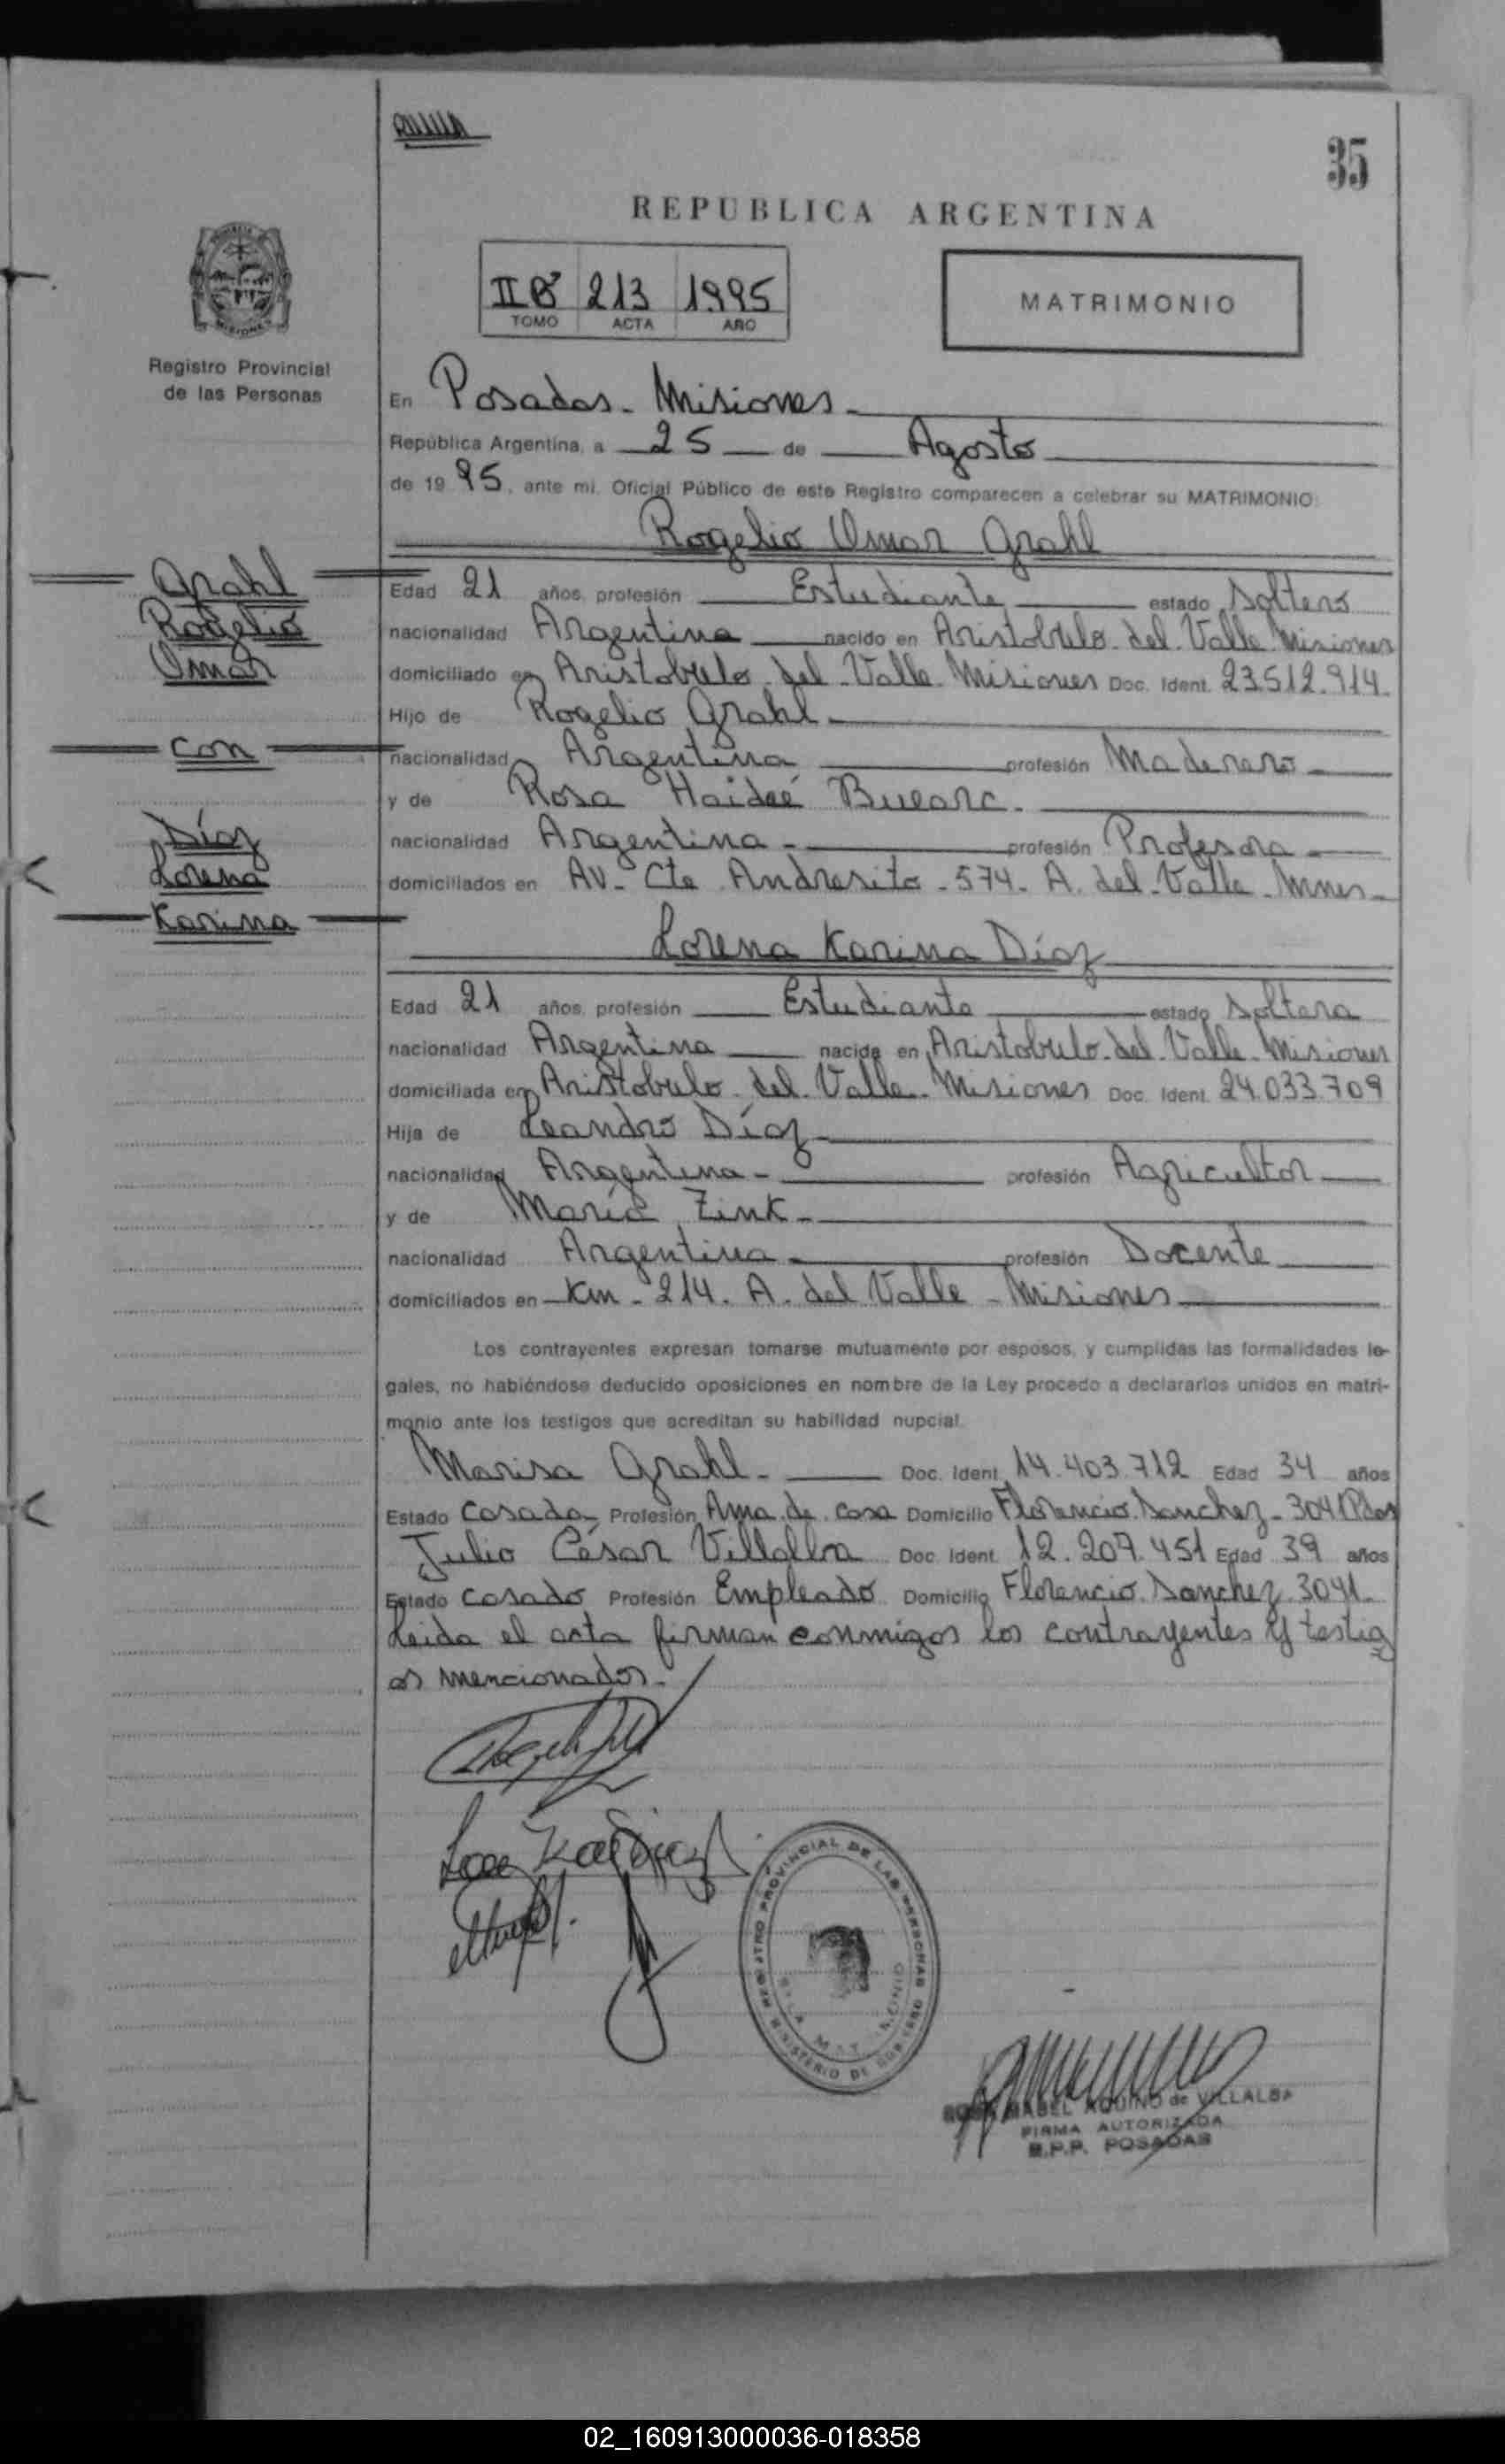 35
REPUBLICA ARGENTINA
II B 213 1995
TOMO ACTA AÑO
MATRIMONIO
Registro Provincial
de las Personas
En Posadas - Misiones
República Argentina, a 25 de Agosto
de 1995, ante mi, Oficial Público de este Registro comparecen a celebrar su MATRIMONIO:
Rogelio Omar Grahl
Grahl
Rogelio
Omar
con
Díaz
Lorena
Karina
Edad 21 años, profesión Estudiante estado Soltero
nacionalidad Argentina nacido en Aristobulo del Valle Misiones
domiciliado en Aristobulo del Valle Misiones Doc. Ident. 23.512.914
Hijo de Rogelio Grahl
nacionalidad Argentina profesión Maderero
y de Rosa Haideé
nacionalidad Argentina profesión Profesora
domiciliados en Av. Cte Andresito - 574 - A. del Valle Mnes
Lorena Karina Díaz
Edad 21 años, profesión Estudiante estado Soltera
nacionalidad Argentina nacida en Aristobulo del Valle Misiones
domiciliada en Aristobulo del Valle Misiones Doc. Ident. 24.033.709
Hija de Leandro Díaz
nacionalidad Argentina profesión Agricultor
y de María Zink
nacionalidad Argentina profesión Docente
domiciliados en Km - 214. A. del Valle - Misiones
Los contrayentes expresan tomarse mutuamente por esposos, y cumplidas las formalidades le-
gales, no habiéndose deducido oposiciones en nombre de la Ley procedo a declararlos unidos en matri-
monio ante los testigos que acreditan su habilidad nupcial.
Marisa Grahl Doc. Ident. 14.403.712 Edad 34 años
Estado Casada Profesión Ama de casa Domicilio Florencio Sanchez - 3041 Pdas
Julio César Villalba Doc. Ident. 12.207.451 Edad 39 años
Estado Casado Profesión Empleado Domicilio Florencio Sanchez 3041
Leida el acta firman conmigos los contrayentes y testig
os mencionados.
REGISTRO PROVINCIAL DE LAS PERSONAS
MINISTERIO DE GOBIERNO
MABEL AQUINO de VILLALBA
FIRMA AUTORIZADA
R.P.P. POSADAS
02_160913000036-018358